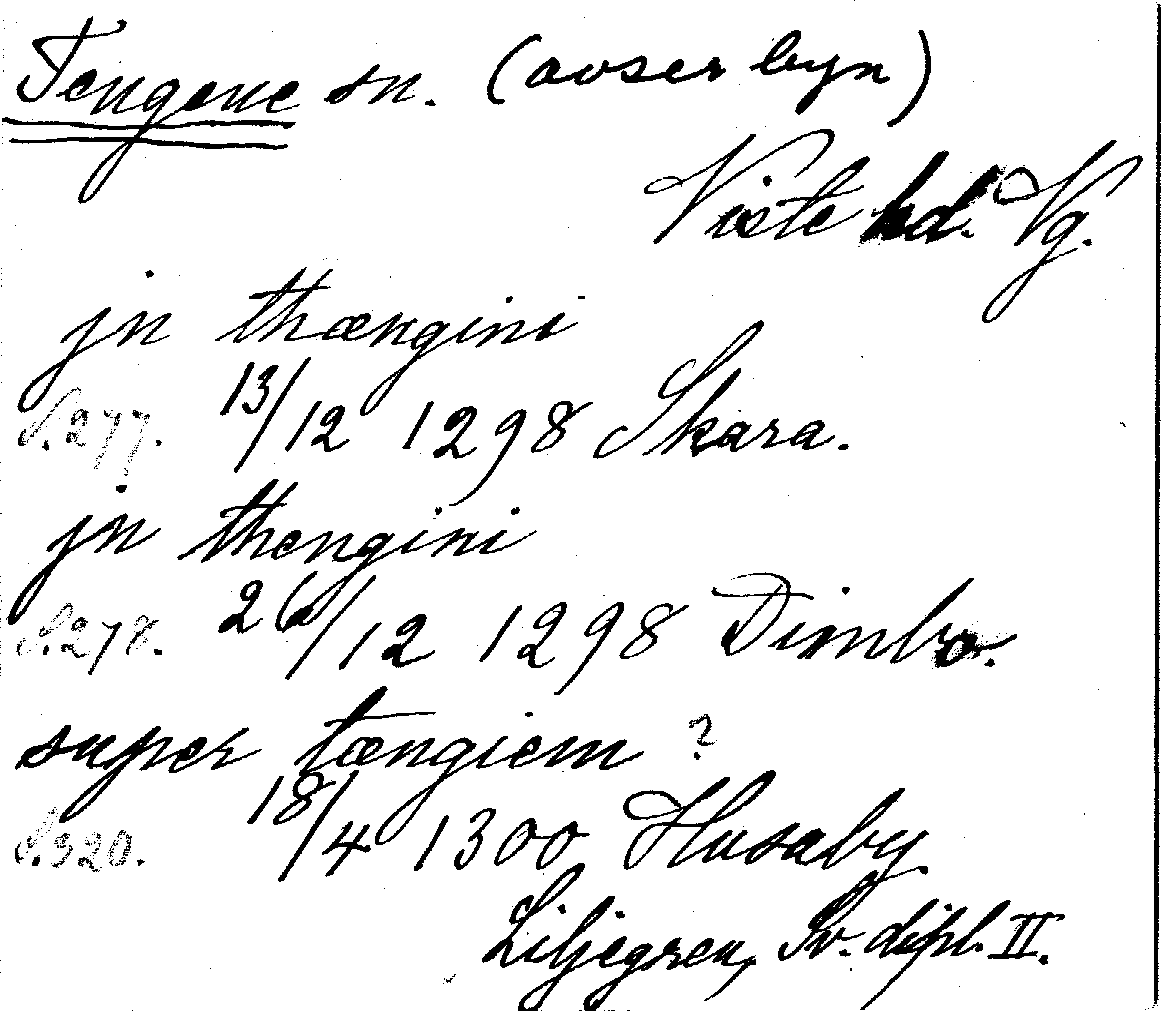 Tengene sn. (avser byn)
Viste hd. Vg.
jn thængini
S. 277. 13/12 1298 Skara.
jn thengini
S. 278. 26/12 1298 Dimbo.
super tængiem ?
S. 320. 18/4 1300 Husaby
Liljegren, Sv. dipl. II.